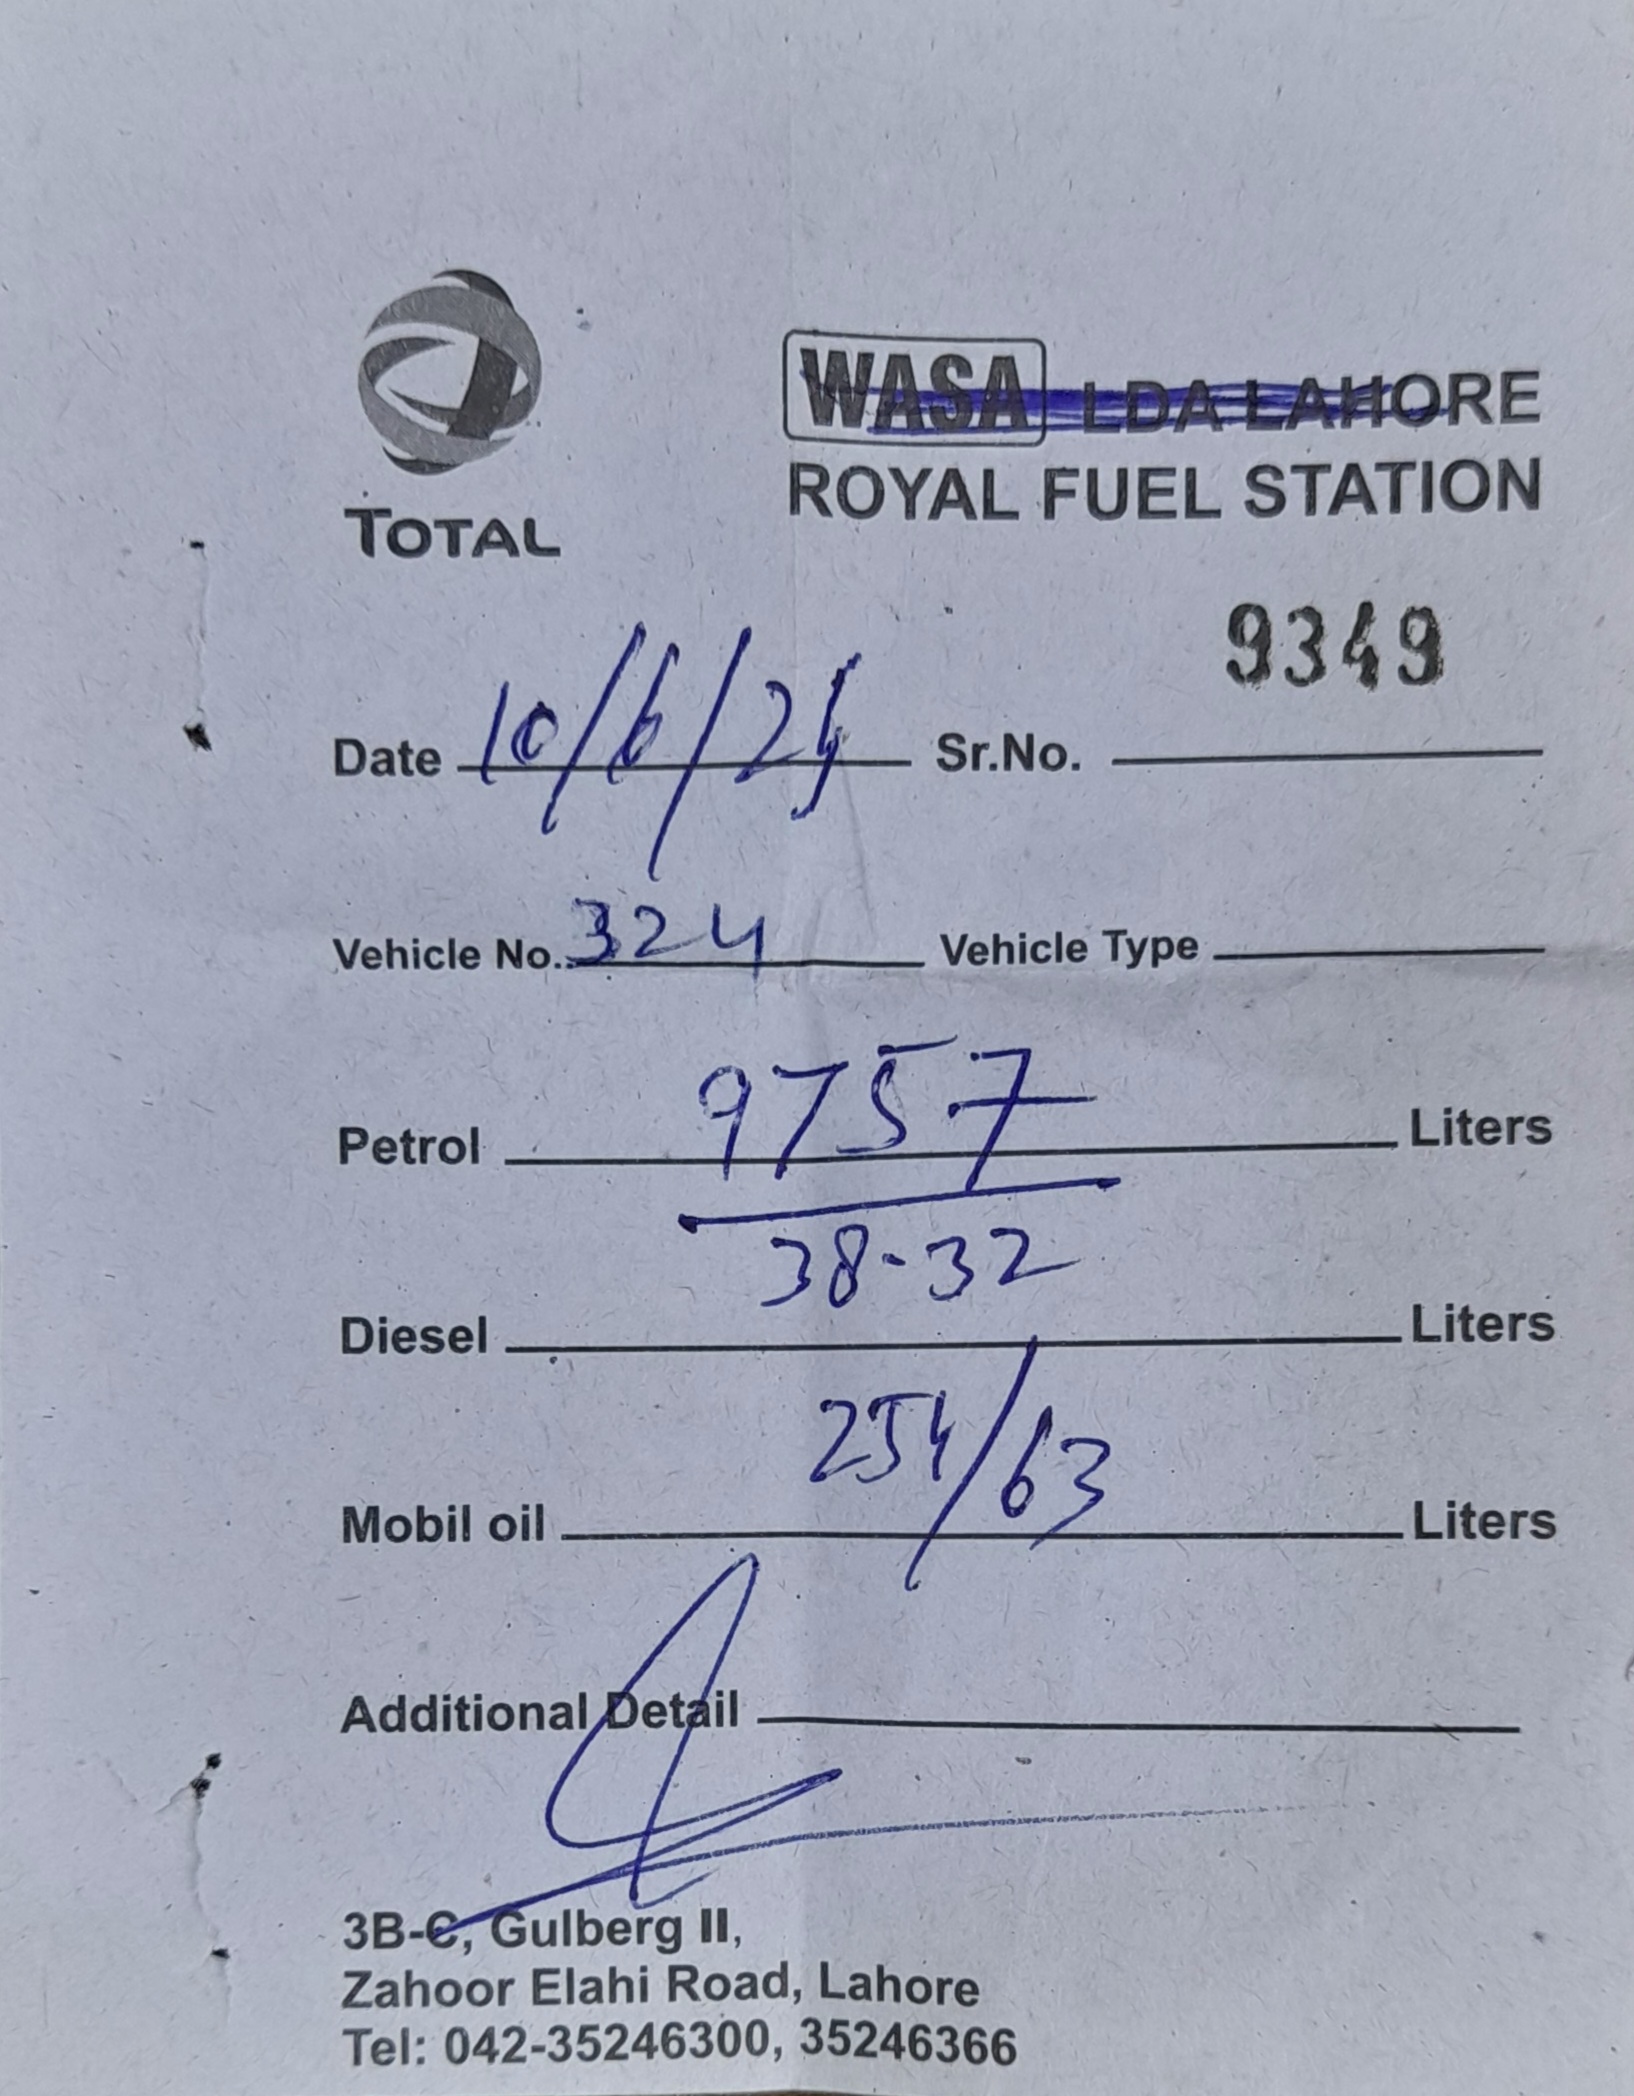 TOTAL
WASA LDA LAHORE
ROYAL FUEL STATION
9349
Date 10/6/24 Sr.No.
Vehicle No. 324 Vehicle Type
Petrol 9757 Liters
38-32
Diesel Liters
254/63
Mobil oil Liters
Additional Detail
3B-C, Gulberg II,
Zahoor Elahi Road, Lahore
Tel: 042-35246300, 35246366